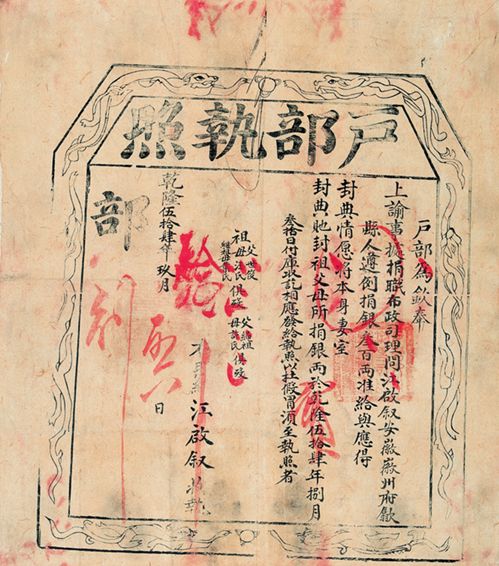 戶部執照
戶部為欽奉
上諭事據捐職布政司理問江啟叙安徽徽州府歙
縣人遵例捐銀叁百兩准給與應得
封典情愿將本身妻室
封典貤封祖父母所捐銀兩於乾隆伍拾肆年捌月
叁拾日付庫收訖相應發給執照以杜假冒須至執照者
祖父
母
俱歿
父
母
俱歿
江啟叙
乾隆伍拾肆年玖月 日
部